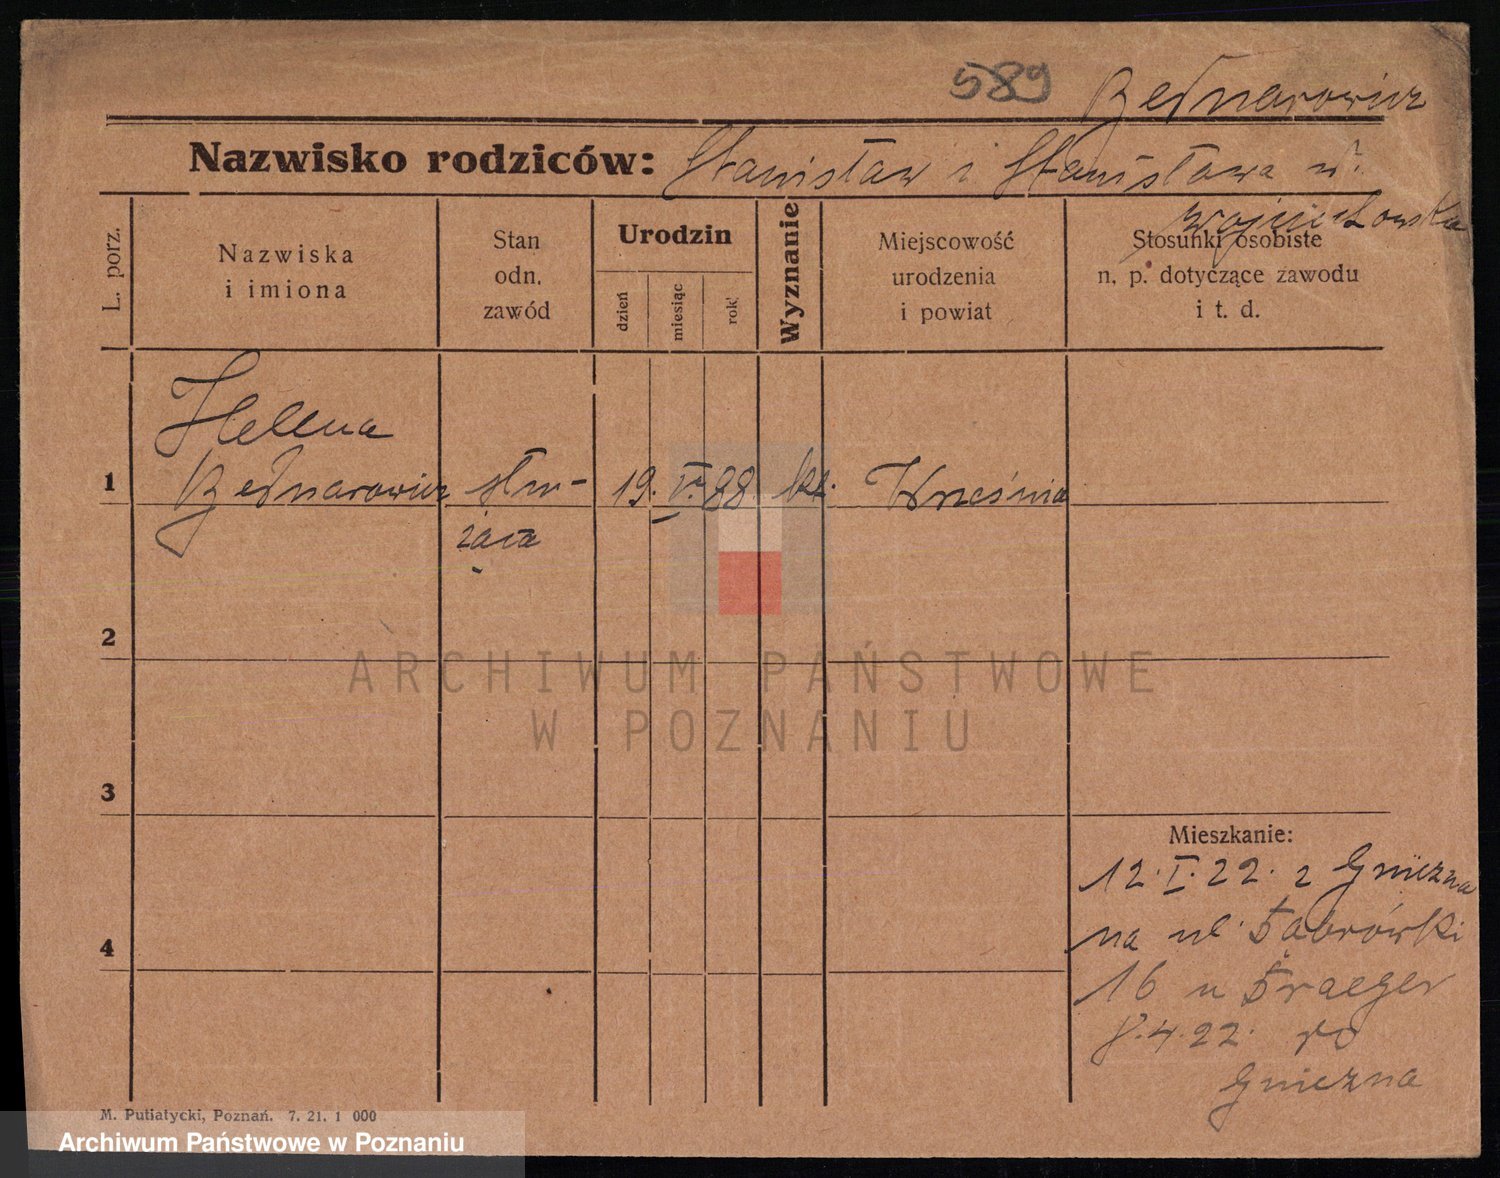 589 Bednarowicz
Nazwisko rodziców: Stanisław i Stanisława u.
Wojciechowska
L. porz.
Nazwiska
i imiona
Stan
odn.
zawód
Urodzin
dzień
miesiąc
rok
Wyznanie
Miejscowość
urodzenia
i powiat
Stosunki osobiste
n. p. dotyczące zawodu
i t. d.
Helena
1 Bednarowicz słu- 19. V. 88. kt. Września
żąca
2
ARCHIWUM PAŃSTWOWE
W POZNANIU
3
Mieszkanie:
12. I. 22. z Gniezna
na ul. Dąbrówki
4
16 u
8.4.22. do
Gniezna
M. Putiatycki, Poznań. 7. 21. 1 000
Archiwum Państwowe w Poznaniu